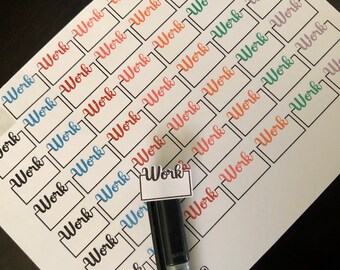 Work Work Work Work Work Work Work
Work Work Work Work Work Work Work Work
Work Work Work Work Work Work Work Work
Work Work Work Work Work Work Work Work
Work Work Work Work Work Work
Work Work Work Work
Work